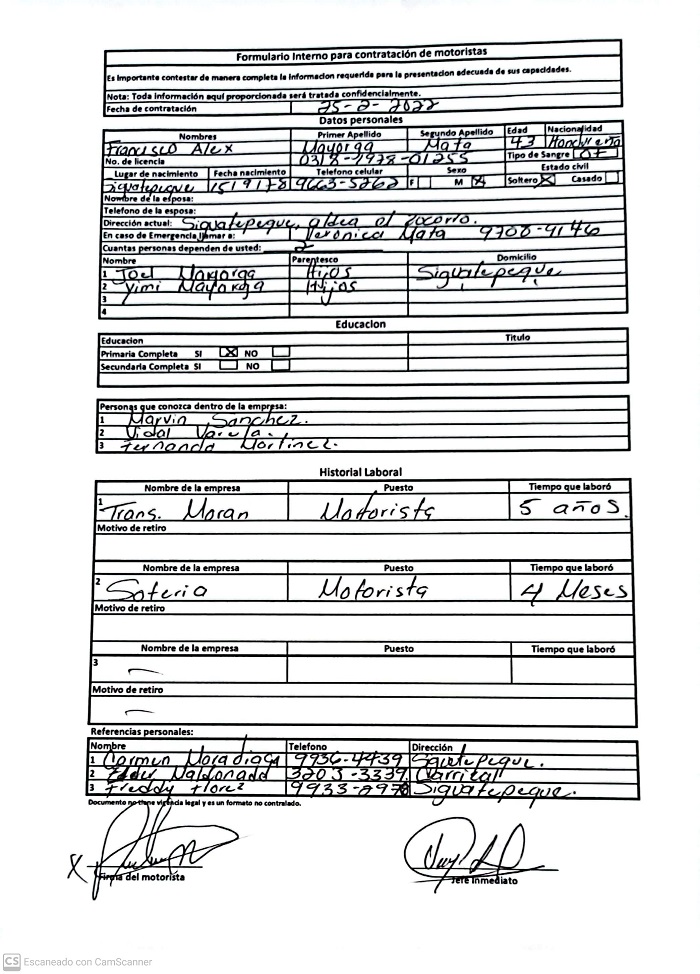 Formulario Interno para contratación de motoristas
Es importante contestar de manera completa la informacion requerida para la presentacion adecuada de sus capacidades.
Nota: Toda información aquí proporcionada será tratada confidencialmente.
Fecha de contratación 25-2-2022
Datos personales
Nombres Primer Apellido Segundo Apellido Edad Nacionalidad
Francisco Alex Mayorga Mata 43 Hondureña
No. de licencia 0318-1978-01255 Tipo de Sangre O+
Lugar de nacimiento Fecha nacimiento Telefono celular Sexo Estado civil
Siguatepeque 9663-5262 F M X Soltero X Casado
Nombre de la esposa:
Telefono de la esposa:
Dirección actual: Siguatepeque, aldea el socorro.
En caso de Emergencia llamar a: Veronica Mata 9708-9146
Cuantas personas dependen de usted: 2
Nombre Parentesco Domicilio
1 Joel Mayorga Hijos Siguatepeque
2 Yimi Mayorga Hijos
3
4
Educacion
Educacion Titulo
Primaria Completa SI X NO
Secundaria Completa SI NO
Personas que conozca dentro de la empresa:
1 Marvin Sanchez.
2 Vidal Varela.
3 Fernando Martinez.
Historial Laboral
Nombre de la empresa Puesto Tiempo que laboró
1 Trans. Moran Motorista 5 años.
Motivo de retiro
Nombre de la empresa Puesto Tiempo que laboró
2 Soteria Motorista 4 Meses
Motivo de retiro
Nombre de la empresa Puesto Tiempo que laboró
3
Motivo de retiro
Referencias personales:
Nombre Telefono Dirección
1 Carmen Moradiaga 9936-4439 Siguatepeque.
2 Maldonado 3203-3339 Carrizal
3 Freddy Florez Siguatepeque.
Documento no tiene vigencia legal y es un formato no contralado.
X
Firma del motorista Jefe Inmediato
CS Escaneado con CamScanner